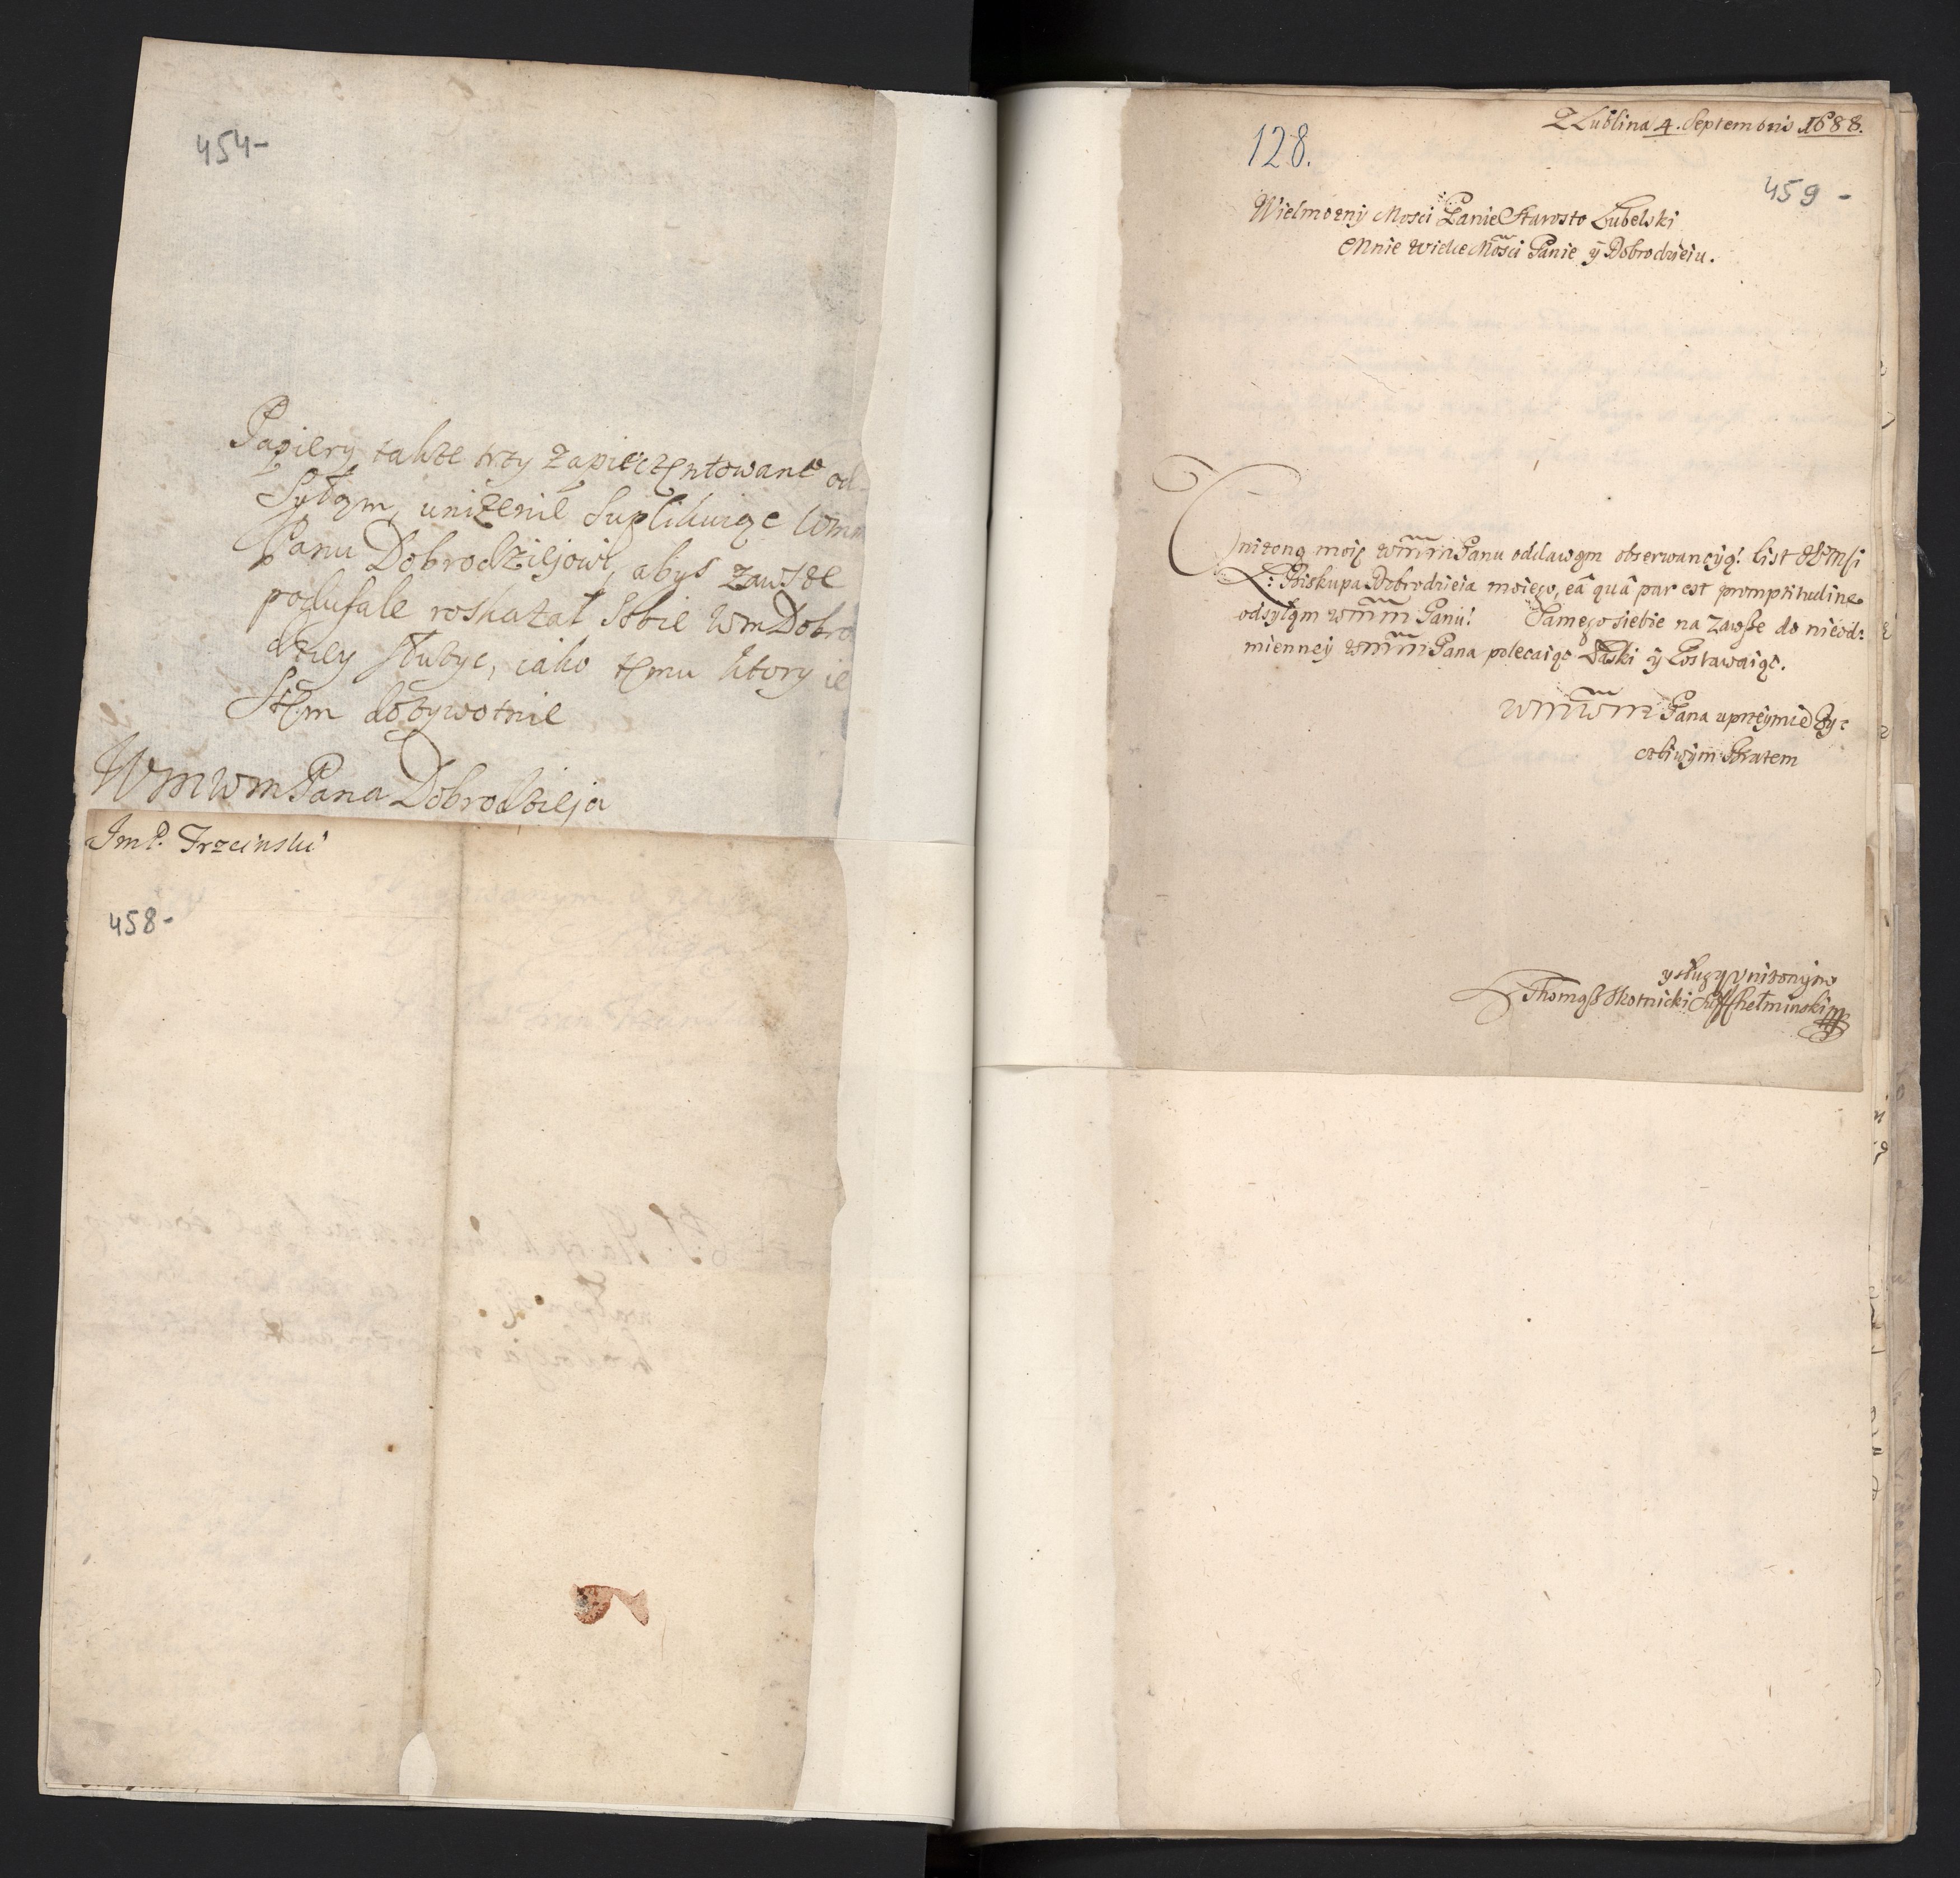 454-
Papiery takze trzy zapieczętowane od-
syłam, unizenie suplikuiąc Wm
Panu Dobrodziejowi, abys zawsze
poufale roskazał sobie WmDobro
dziey słuzyc, iako temu ktory ie
stem dozywotnie
WmWmPana Dobrodzieja
ImP. Trzcinski
458-
Z Lublina 4. Septembris 1688.
128.
459-
Wielmozny Mosci Panie Starosto Lubelski
Mnie wielce Mosci Panie ÿ Dobrodzieiu.
Vnizoną moię wmm Panu oddawam obserwancyą! list
X: Biskupa Dobrodzieia moiego, eâ quâ par est promptitudine
odsyłąm wmm Panu! Samego siebie na zawsze do nieod:
mienneÿ wmm Pana polecaiąc Łaski ÿ Zostawaiąc.
wmwm Pana uprzeÿmie Zyc
zliwÿm Bratem
y sługą Vnizonÿm
Thomasz Skotnicki Chełminski